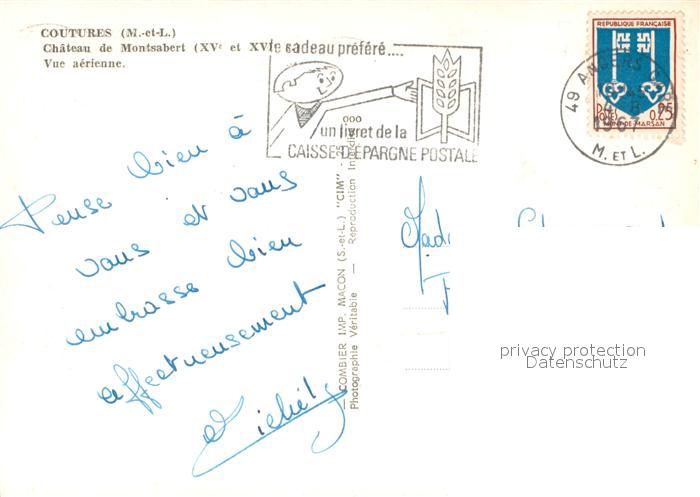 COUTURES (M.-et-L.)
Château de Montsabert (XVe et XVIe s
Vue aérienne.
le cadeau préféré....
un livret de la
CAISSE D'EPARGNE POSTALE
49 ANGERS
1967
M. ET L.
REPUBLIQUE FRANÇAISE
POSTES
0,25
MONT-DE-MARSAN
Pense bien à
vous et vous
embrasse bien
affectueusement
Michel
COMBIER IMP. MACON (S.-et-L.) "CIM"
Photographie Véritable — Reproduction Interdite
Mad
privacy protection
Datenschutz